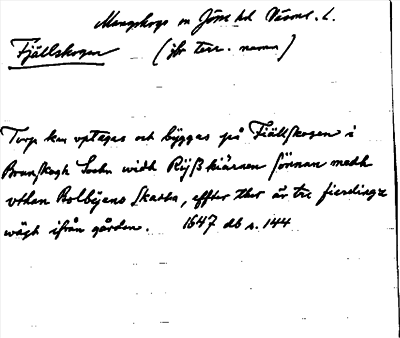 Mangskogs sn Jösse hd Värml. l.
Fjällskogen (jfr terr. namn)
Torp kan vptagas och byggas på Fiällskogen i
Brunskogh Sochn widh Rijsskiärnen sönnan medh
vthan Bolbÿens skatta, effter ther är tre fierdingz
wägh ifrån gården. 1647 db s. 144